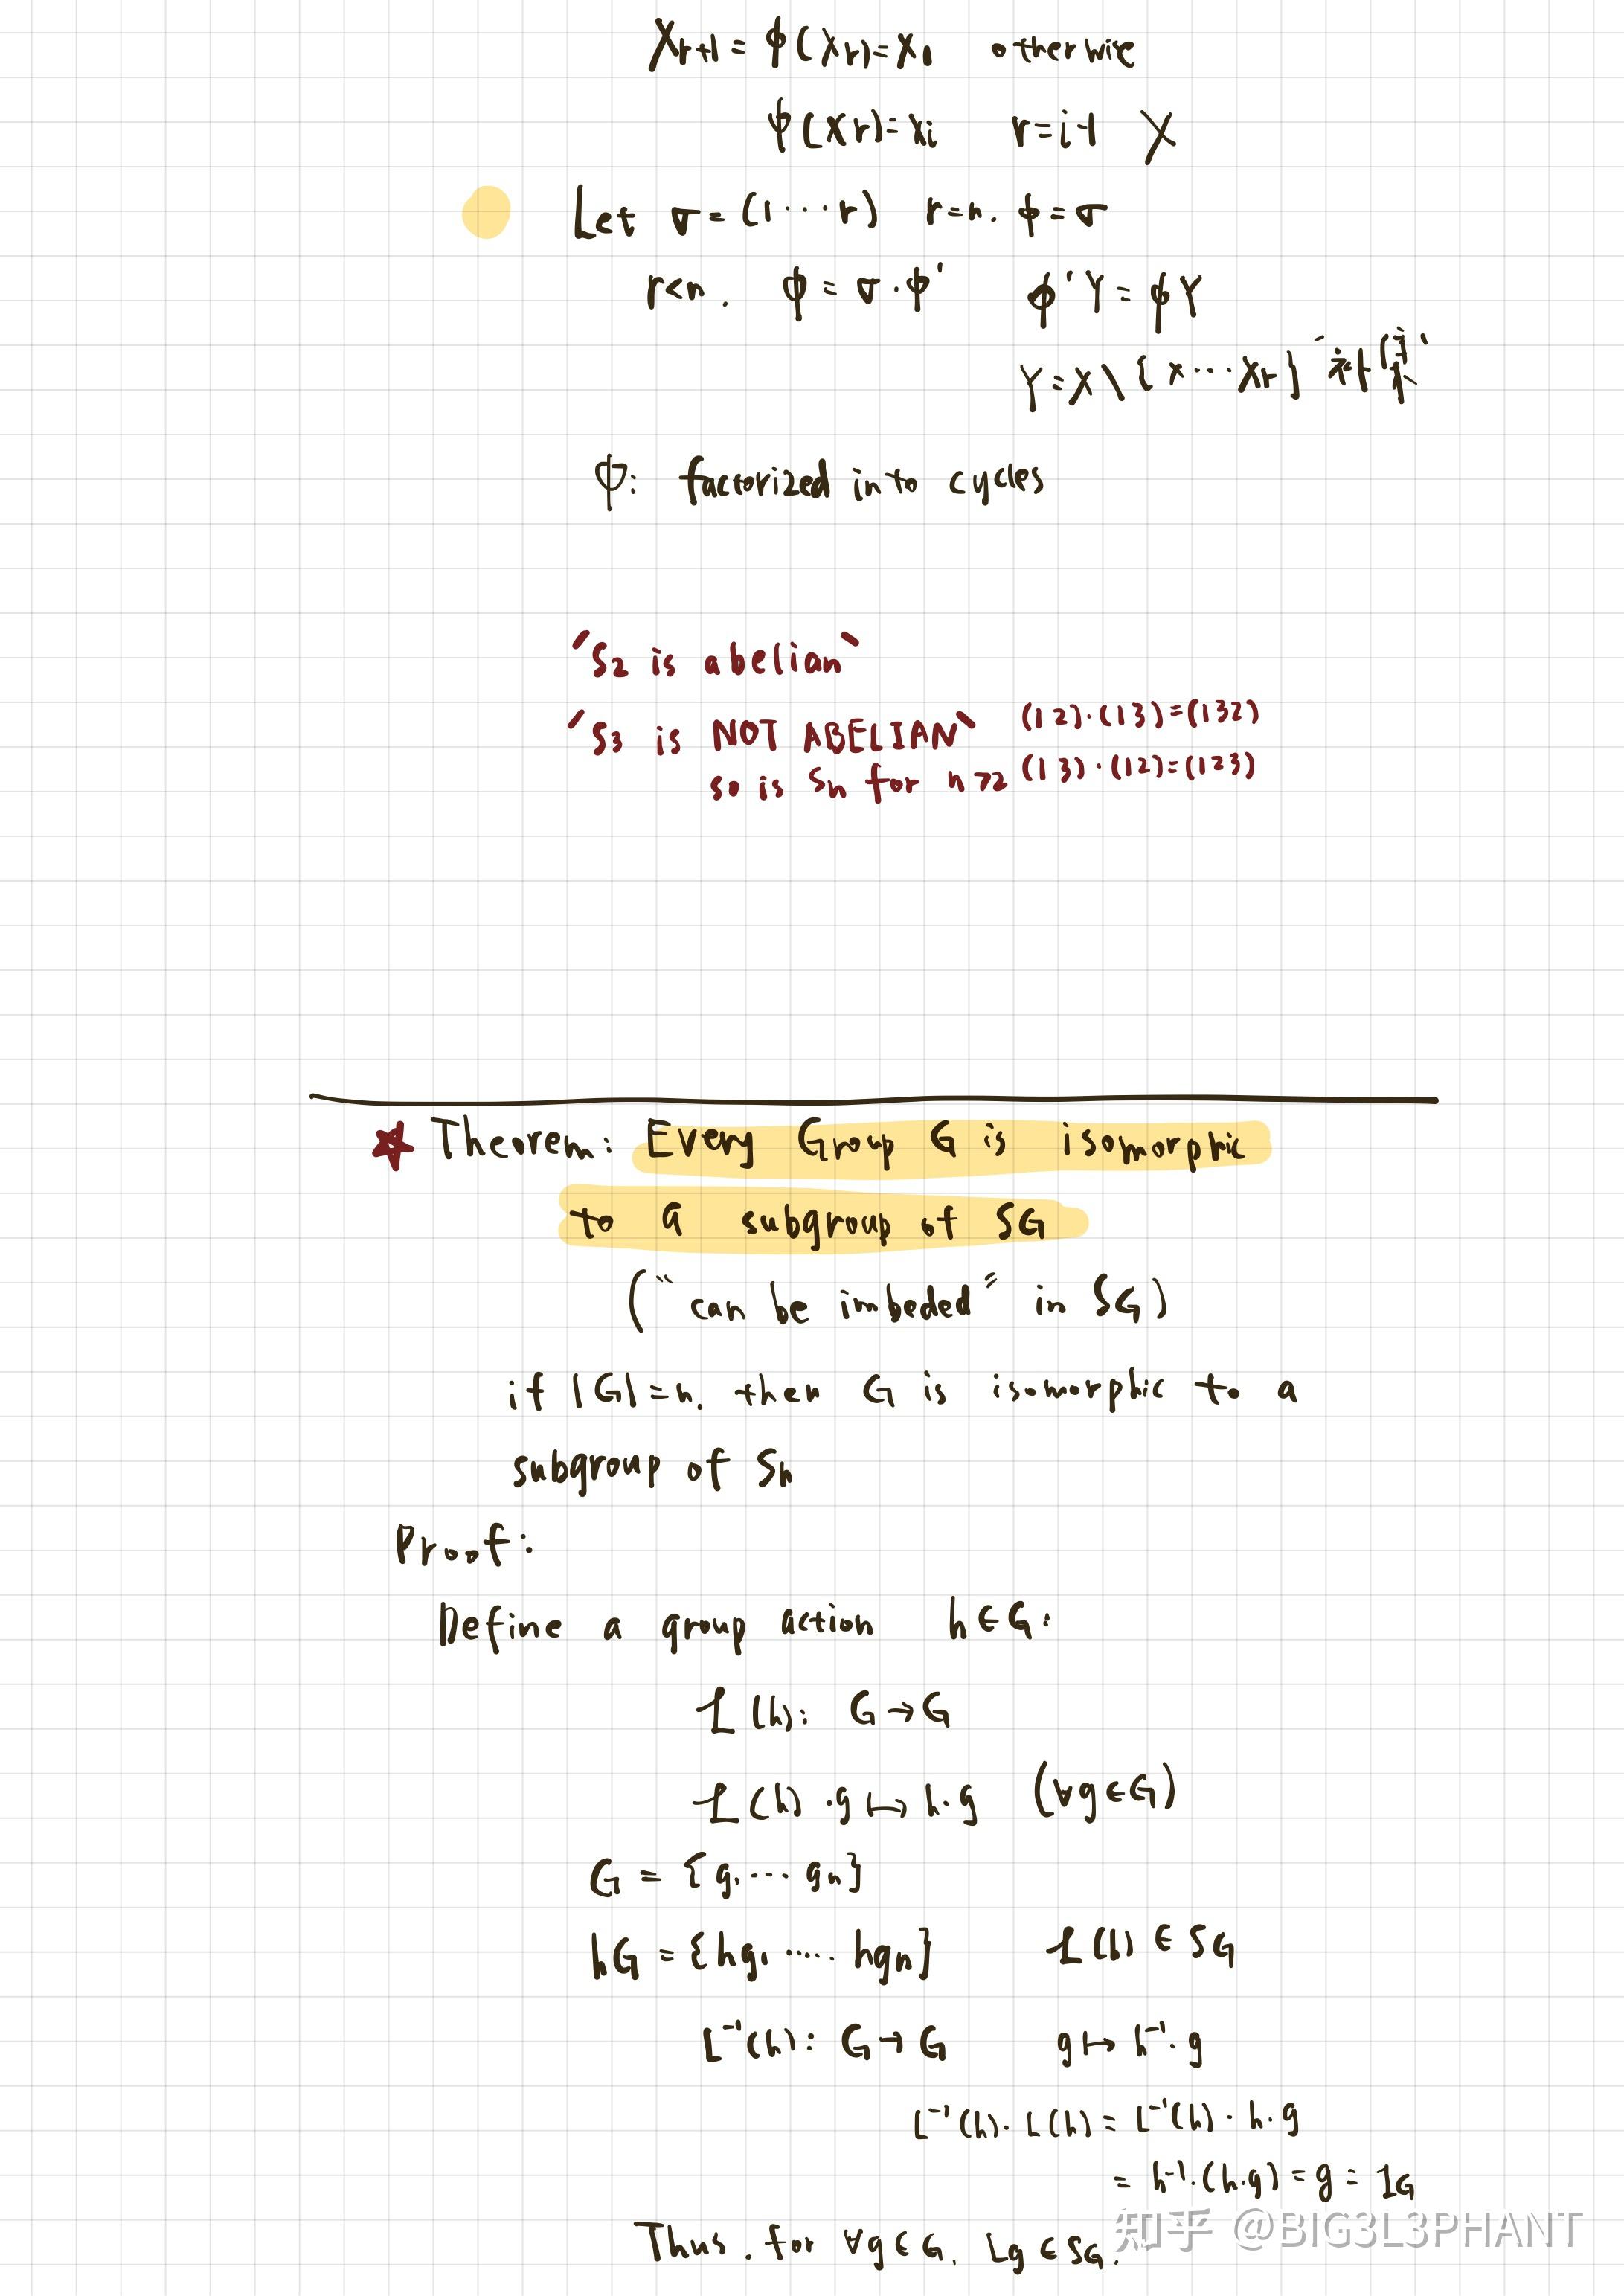 X_{r+1} = φ(X_r) = X_1 otherwise
φ(X_r) = X_i r = i-1 X
Let σ = (1 ··· r) r = n. φ = σ
r < n. φ = σ · φ' φ'Y = φY
Y = X \ { x ··· X_r } "补集"
φ: factorized into cycles
"S2 is abelian"
"S3 is NOT ABELIAN" (1 2)·(1 3) = (1 3 2)
so is Sn for n>2 (1 3)·(1 2) = (1 2 3)
Theorem: Every Group G is isomorphic
to a subgroup of SG
("can be imbeded" in SG)
if |G| = n. then G is isomorphic to a
subgroup of Sn
Proof:
Define a group action h ∈ G:
L(h): G → G
L(h) · g ↦ h · g (∀g ∈ G)
G = {g1 ···· gn}
hG = {hg1 ····· hgn} L(h) ∈ SG
L⁻¹(h): G → G g ↦ h⁻¹ · g
L⁻¹(h) · L(h) = L⁻¹(h) · h · g
= h⁻¹ · (h · g) = g = 1G
Thus. for ∀g ∈ G. Lg ∈ SG.
知乎 @BIG3L3PHANT